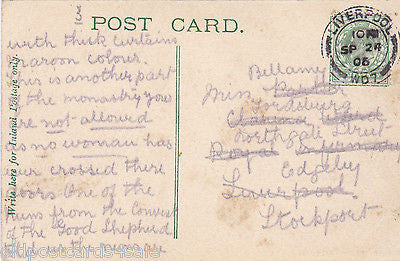 3
POST CARD.
Write here for Inland Postage only.
with thick curtains
maroon colour.
This is another part
the monastery you
are not allowed
as no woman has
ever crossed there
doors One of the
nuns from the Convent
of The Good Shepherd
LIVERPOOL
SP 24
06
Bellamy
Miss Butler
Fordsburg
Northgate Street
Royal Infirmary
Edgeley
Liverpool
Stockport
oldpostcards4sale